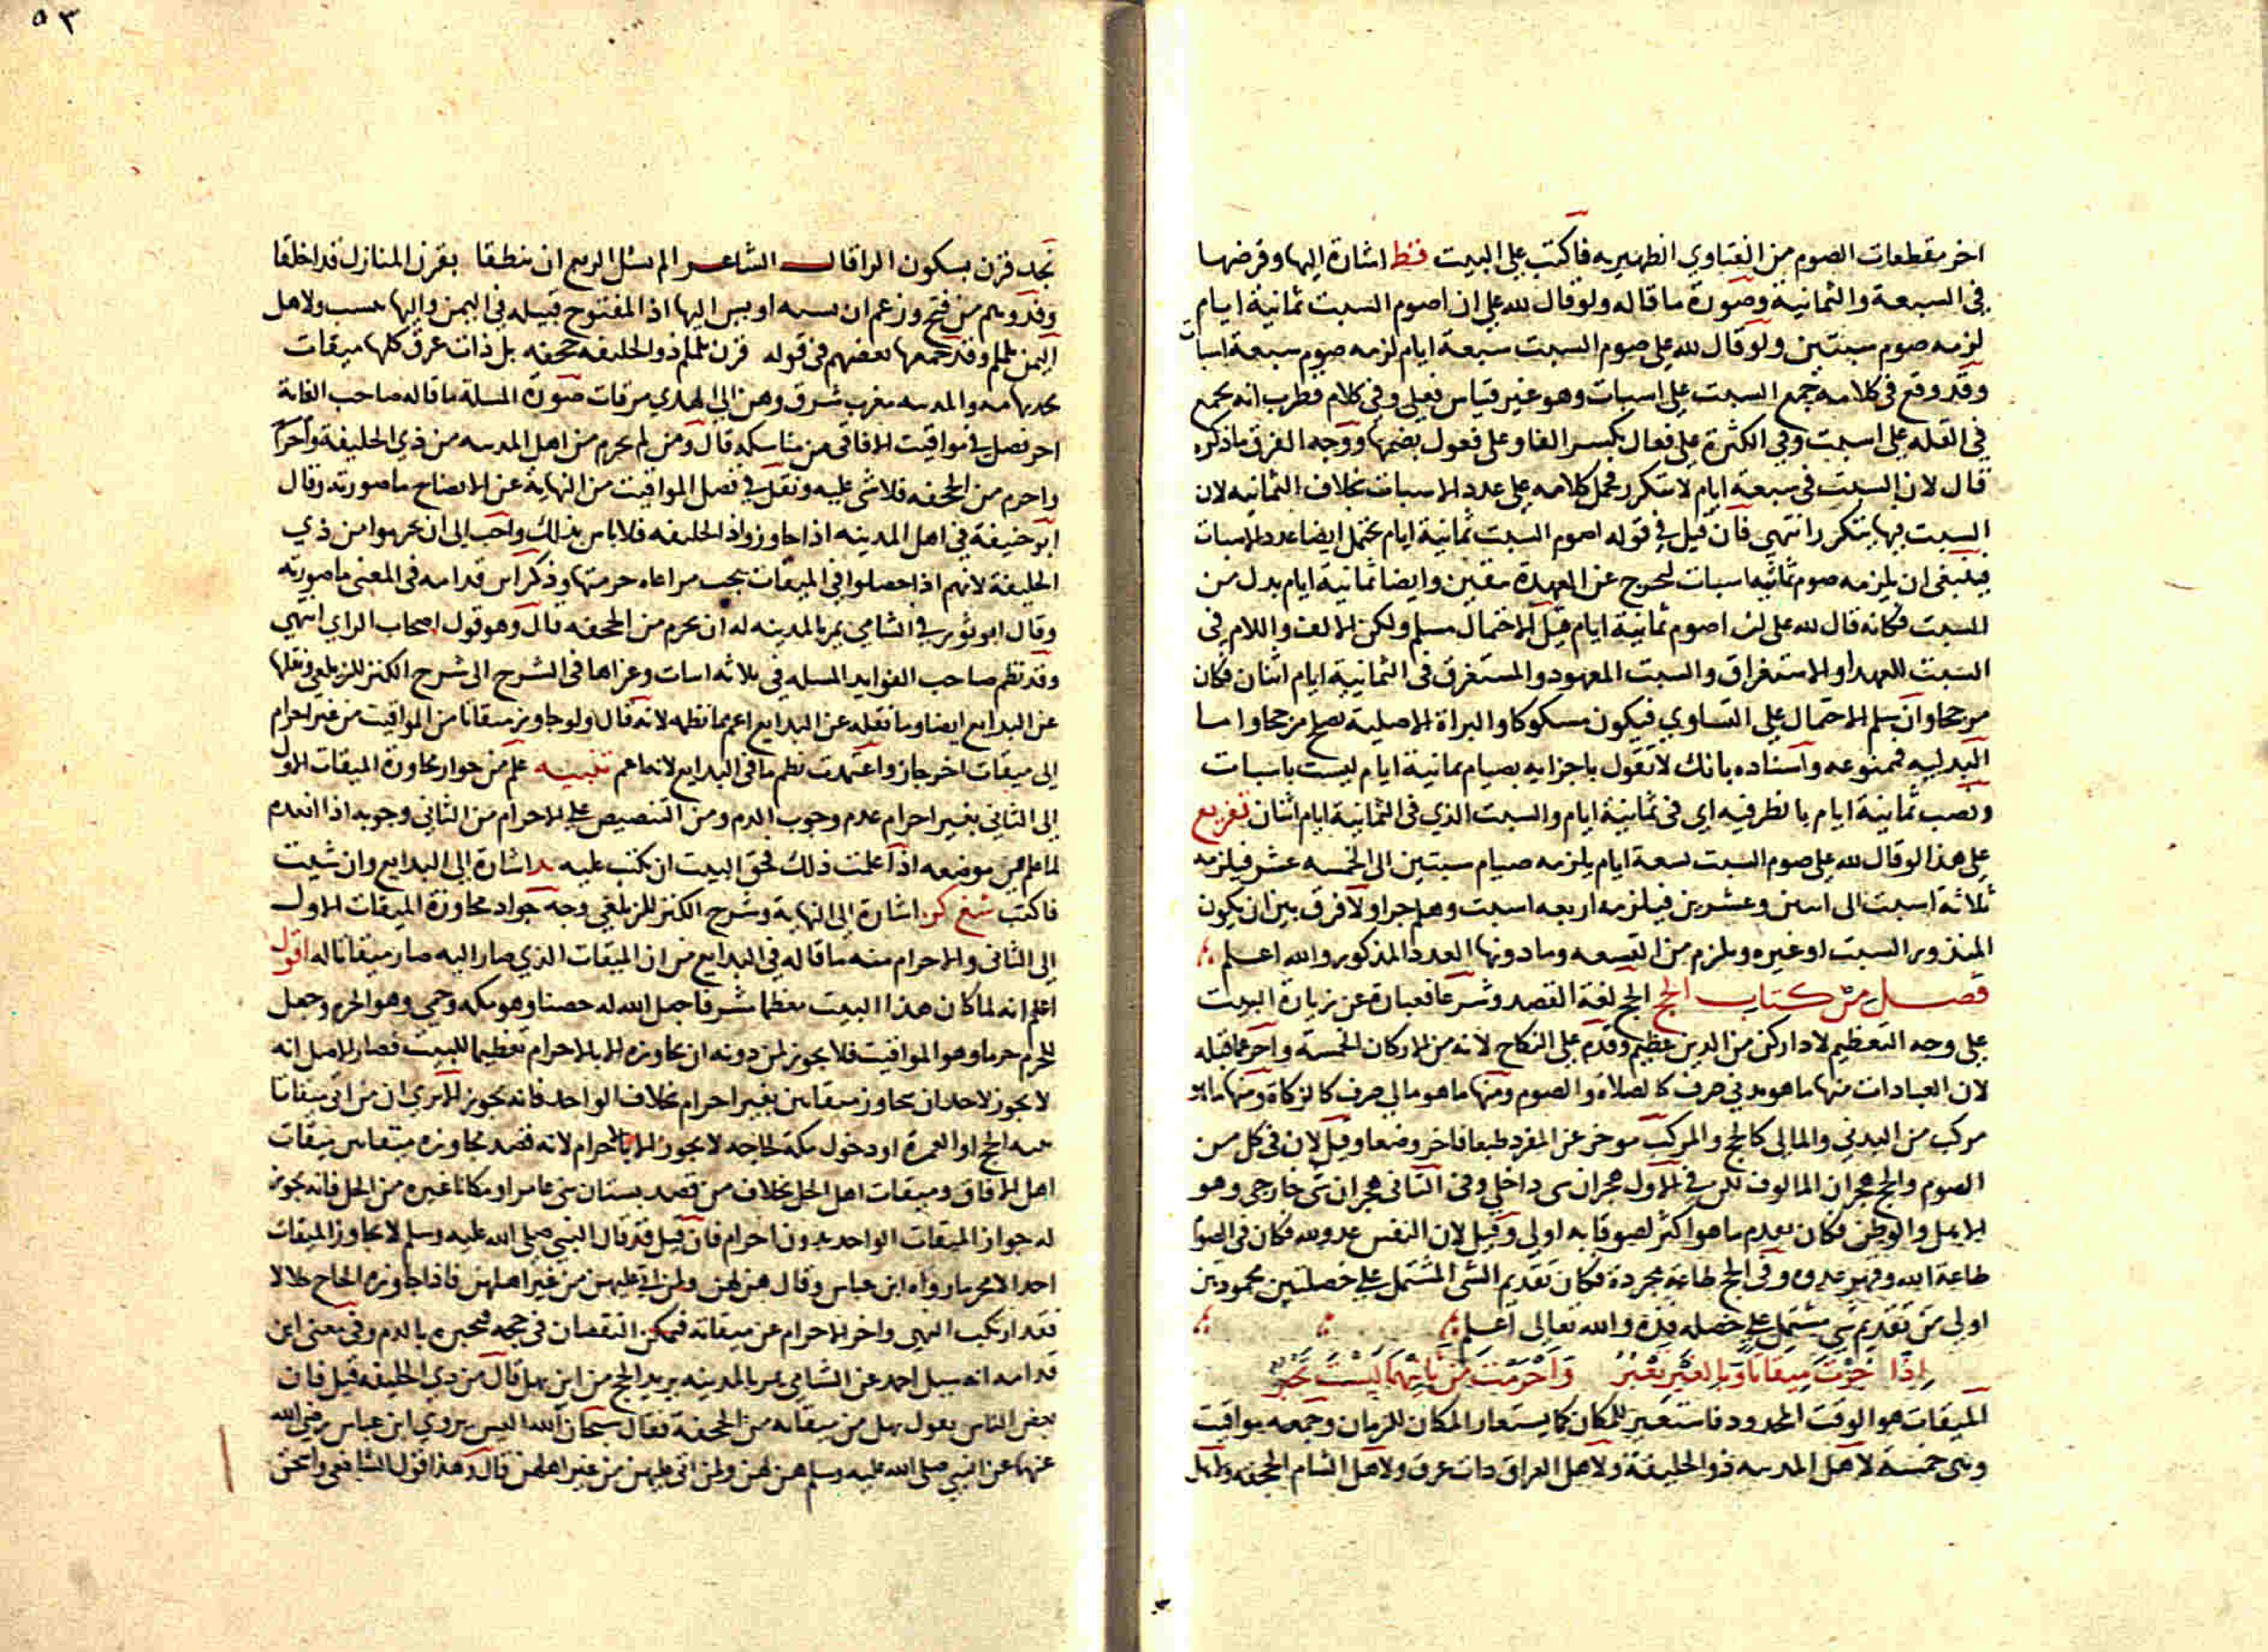 اخر مقطعات الصوم من الفتاوي الظهيريه فاكتب على البيت فظ اشارة اليها وفرضها
في السبعة والثمانية وصورة ما قاله ولو قال لله علي ان اصوم السبت ثمانية ايام
لزمه صوم سبتين ولو قال لله علي صوم السبت سبعة ايام لزمه صوم سبعة اسبات
وقد وقع في كلامه جمع السبت على اسبات وهو غير قياس فعل وفي كلام قطرب انه يجمع
في القله على اسبت وفي الكثرة على فعال بكسر الفا وعلى فعول بضمها ووجه الفرق ما ذكره
قال لان السبت في سبعة ايام لا يتكرر فحمل كلامه على عدد الاسبات بخلاف الثمانيه لان
السبت فيها يتكرر انتهى فان قيل في قوله اصوم السبت ثمانية ايام يحتمل ايضا عدد الاسبات
فينبغي ان يلزمه صوم ثمانية اسبات ليخرج عن العهدة بيقين وايضا ثمانية ايام بدل من
السبت فكانه قال لله علي ان اصوم ثمانية ايام قيل الاحتمال مسلم ولكن الالف واللام في
السبت للعهد او الاستغراق والسبت المعهود والمستغرق في الثمانية ايام اثنان فكان
مرجحا وان سلم الاحتمال على التساوي فيكون مشكوكا والبراة الاصلية تصلح مرجحا واما
البدليه فممنوعه واسناده بانك لا تقول باجزايه بصيام ثمانية ايام ليست باسبات
ونصب ثمانية ايام بالظرفيه اي في ثمانية ايام والسبت الذي في الثمانية ايام اثنان تفريع
على هذا لو قال لله علي صوم السبت تسعة ايام يلزمه صيام سبتين الى الخمسه عشر فيلزمه
ثلاثة اسبت الى اثنين وعشرين فيلزمه اربعه اسبت وهلم جرا ولا فرق بين ان يكون
المنذور السبت او غيره ويلزم من التسعه وما دونها العدد المذكور والله اعلم
فصل من كتاب الحج الحج لغة القصد وشرعا فعبارة عن زيارة البيت
على وجه التعظيم لادا ركن من الدين عظيم وقدم على النكاح لانه من الاركان الخمسة واخر عما قبله
لان العبادات منها ما هو بدني صرف كالصلاة والصوم ومنها ما هو مالي صرف كالزكاة ومنها ما هو
مركب من البدني والمالي كالحج والمركب موخر عن المفرد طبعا فاخر وضعا وقيل لان في كل من
الصوم والحج هجران المالوف لكن في الاول هجران شى داخلي وفي الثاني هجران شى خارجي وهو
الاهل والوطن فكان تقديم ما هو اكثر لصوقا به اولى وقيل لان النفس عدو لله فكان في الصوم
طاعة الله وقهر عدوه وفي الحج طاعة مجردة فكان تقديم الشى المشتمل على خصلتين محمودتين
اولى من تقديم شي مشتمل على خصله فذة والله تعالى اعلم
اذا جزت ميقاتا وبالغير تعبر واحرمت من ثانيهما ليس تجبر
الميقات هو الوقت المحدود فاستعير للمكان كما يستعار المكان للزمان وجمعه مواقيت
وهي خمسة لاهل المدينه ذو الحليفة ولاهل العراق ذات عرق ولاهل الشام الجحفه ولاهل
٥٣
نجد قرن بسكون الرا قال الشاعر الم تسئل الربع ان ينطقا بقرن المنازل قد اخلقا
وقد وهم من فتح وزعم ان اويس اليها اذ المفتوح قبيله في اليمن واليها ينسب ولاهل
اليمن يلملم وقد جمعها بعضهم في قوله قرن يلملم ذو الحليفه جحفه بل ذات عرق كلها ميقات
نجد تهامه والمدينه مغرب شرق وهن الى الهدي مرقات صورة المسلة ما قاله صاحب الغاية
اخر فصل في مواقيت الافاقي من مناسكه قال ومن لم يحرم من اهل المدينه من ذي الحليفة واحرا
واحرم من الجحفه فلا شى عليه ونقل في فصل المواقيت من النهاية عن الايضاح ما صورته وقال
ابو حنيفة في اهل المدينه اذا جاوزوا ذا الحليفه فلا باس بذلك واحب الي ان يحرموا من ذي
الحليفة لانهم اذا حصلوا في الميقات يجب مراعاه حرمتها وذكر ابن قدامه في المغني ما صورته
وقال ابو ثور في الشامي يمر بالمدينه له ان يحرم من الجحفه قال وهو قول اصحاب الراي انتهى
وقد نظم صاحب الفوايد المسله في ثلاثه ابيات وعزاها في الشرح الى شرح الكنز للزيلعي ونقلها
عن البدايع ايضا وما نقله عن البدايع اعم مما نظمه لانه قال ولو جاوز ميقاتا من المواقيت من غير احرام
الى ميقات اخر جاز واعتمدت نظم ما في البدايع لانه اعم تنبيه علم من جواز مجاوزة الميقات الاول
الى الثاني بغير احرام عدم وجوب الدم ومن التنصيص على الاحرام من الثاني وجوبه اذا انعدم
لما علم من موضعه اذا علمت ذلك فحق البيت ان يكتب عليه بد اشارة الى البدايع وان شيت
فاكتب شع كن اشارة الى النهاية وشرح الكنز للزيلعي وجه جواز مجاوزة الميقات الاول
الى الثاني والاحرام منه ما قاله في البدايع من ان الميقات الذي صار اليه صار ميقاتا له اقول
اعلم انه لما كان هذا البيت معظما مشرفا جعل الله له حصنا وهو مكه وحمى وهو الحرم وجعل
للحرم حرما وهو المواقيت فلا يجوز لمن دونه ان يجاوزه الا بالاحرام تعظيما للبيت فصار الاصل انه
لا يجوز لاحد ان يجاوز ميقاتين بغير احرام بخلاف الواحد فانه يجوز الا ترى ان من اتى ميقاتا
بنيه الحج او العمرة او دخول مكة لحاجه لا يجوز الا بالاحرام لانه قصد مجاوزه ميقاتين ميقات
اهل الافاق وميقات اهل الحل بخلاف من قصد بستان بني عامر او مكانا غيره من الحل فانه يجوز
له جواز الميقات الواحد بدون احرام فان قيل قد قال النبي صلى الله عليه وسلم لا يجاوز الميقات
احد الا محرما رواه ابن عباس وقال هن لهن ولمن اتى عليهن من غير اهلهن فاذا جاوزه الحاج حلالا
فقد ارتكب النهي واخر الاحرام عن ميقاته فيمكن النقصان في حجه فيجبره بالدم وفي مغني ابن
قدامه انه سيل احمد عن الشامي يمر بالمدينه يريد الحج من اين يهل قال من ذي الحليفه قيل فان
بعض الناس يقول يهل من ميقاته من الجحفة فقال سبحان الله اليس يروي ابن عباس رضي الله
عنهما عن النبي صلى الله عليه وسلم هن لهن ولمن اتى عليهن من غير اهلهن قال وهذا قول الشافعي واسحق